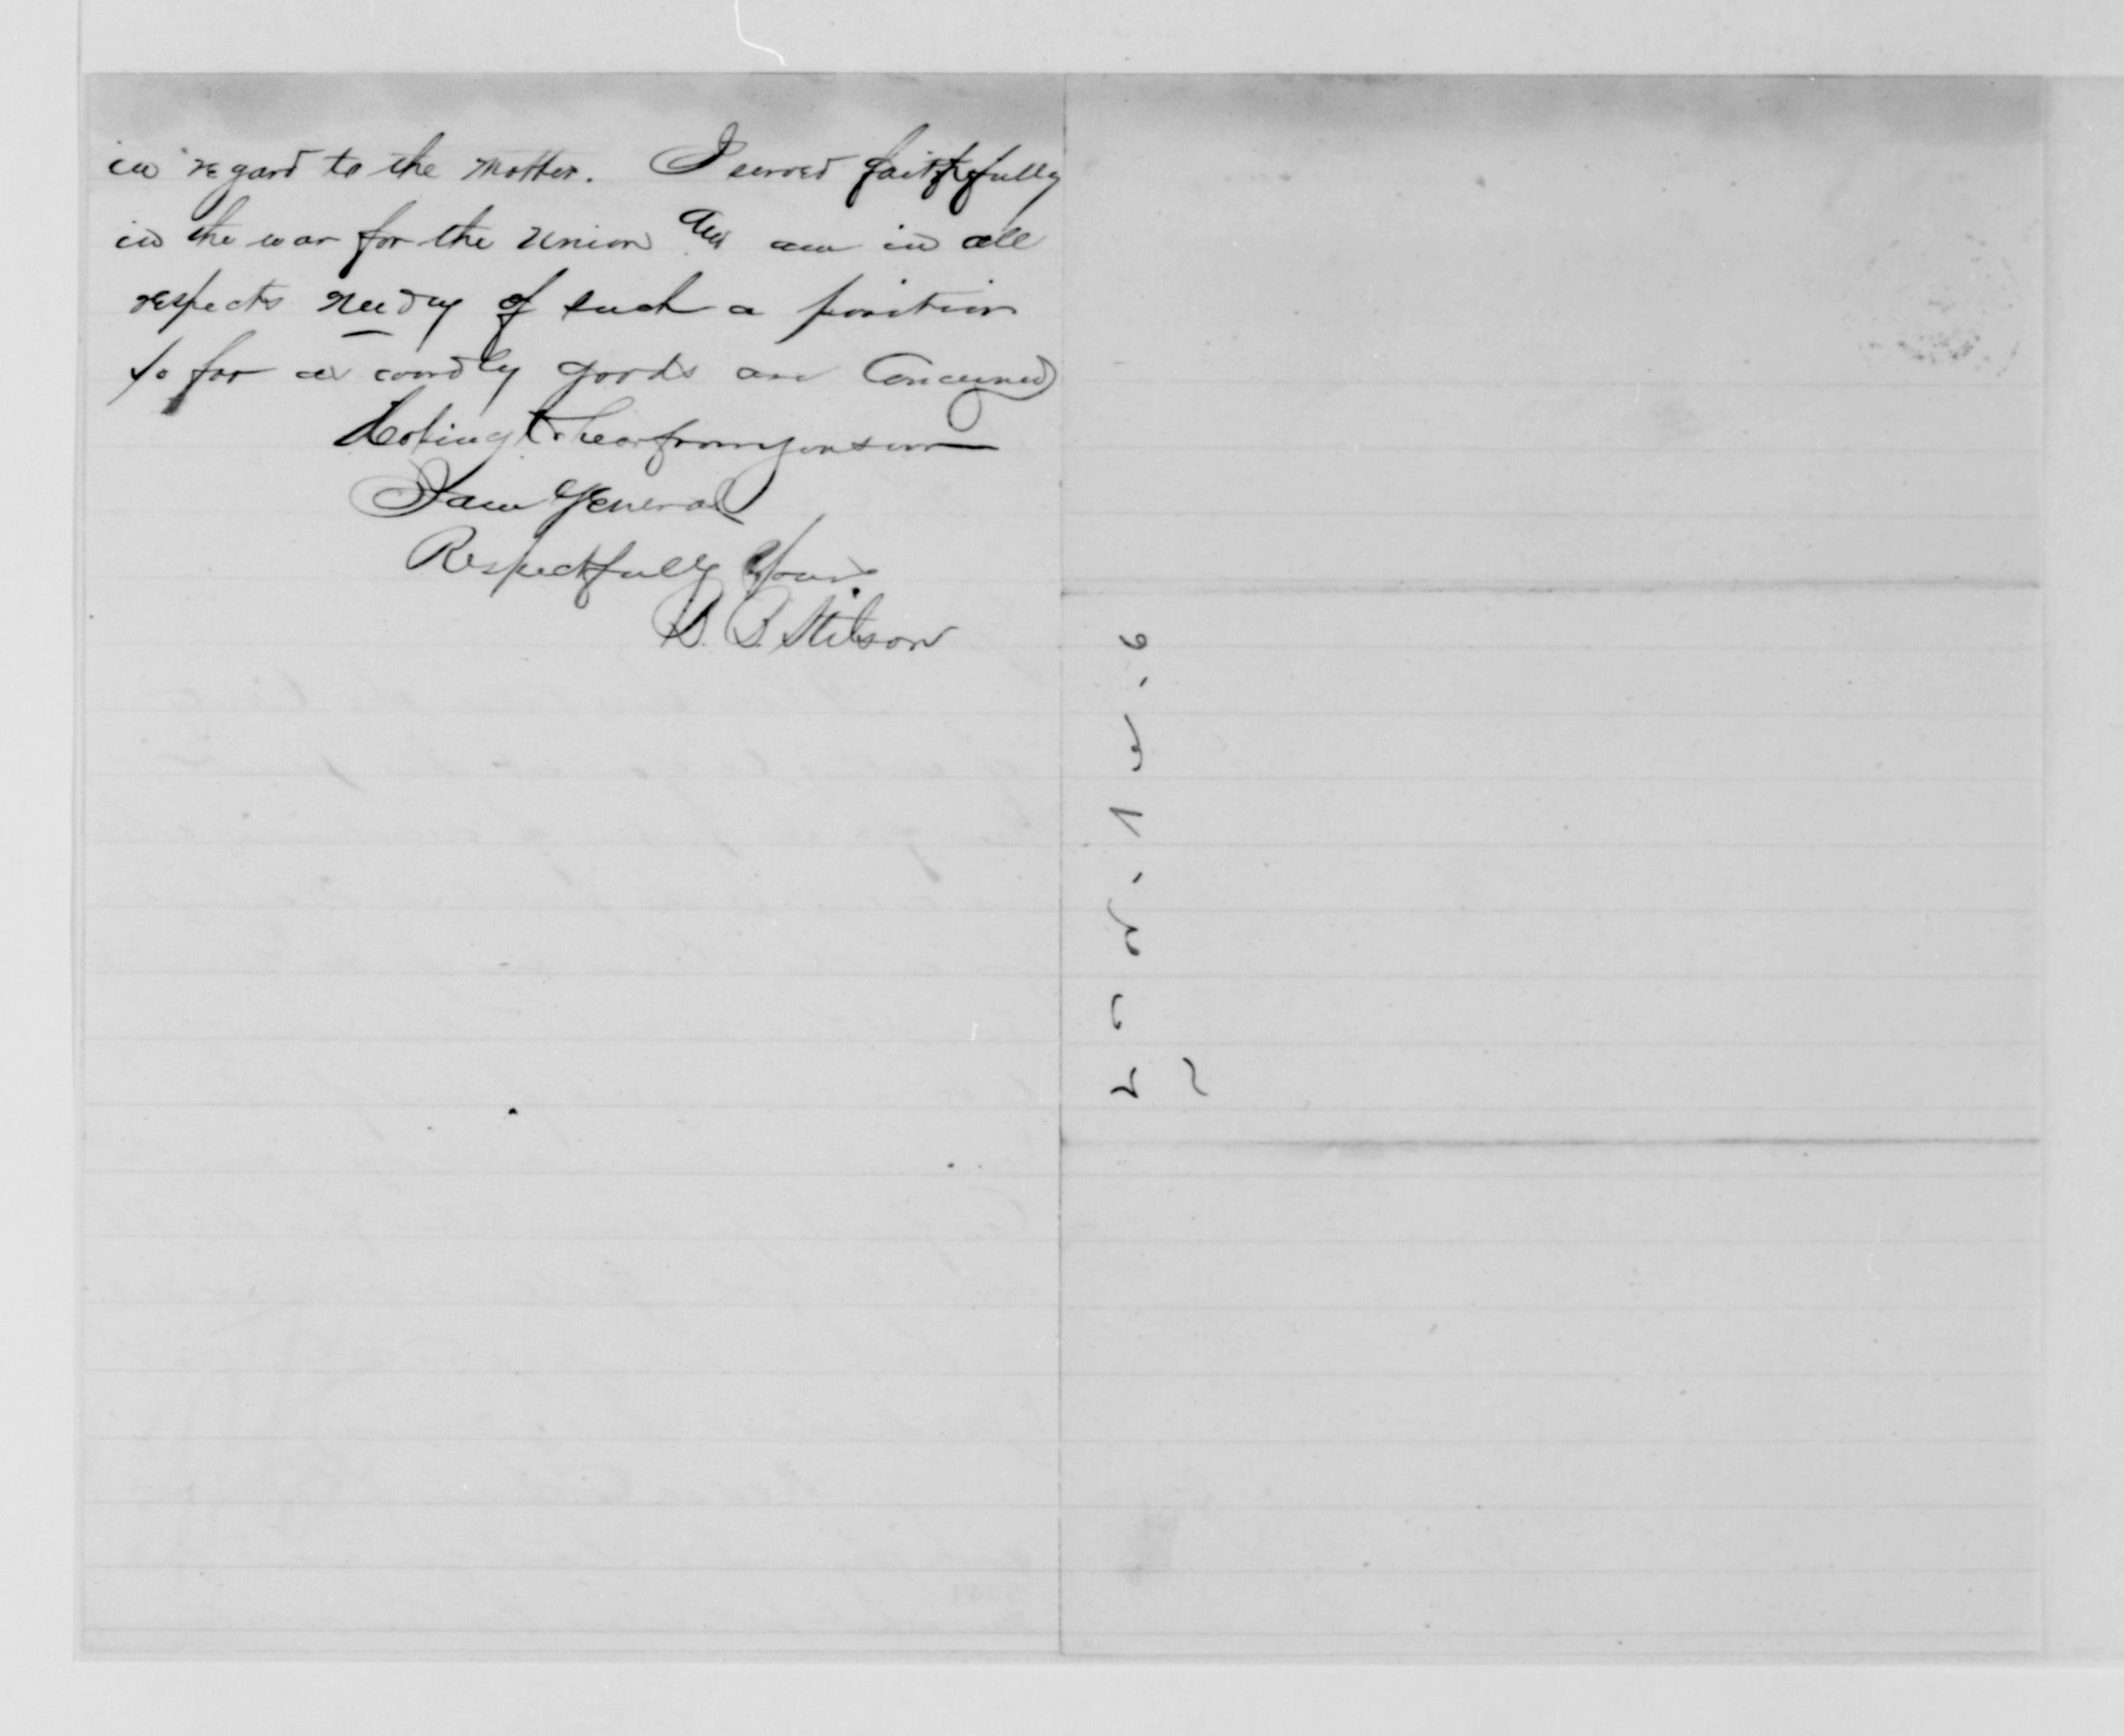 in regard to the matter. I served faithfully
in the war for the Union and am in all
respects needy of such a position
so far as worldly goods are concerned
Hoping to hear from you soon
I am General
Respectfully Yours
B. B. Stilson